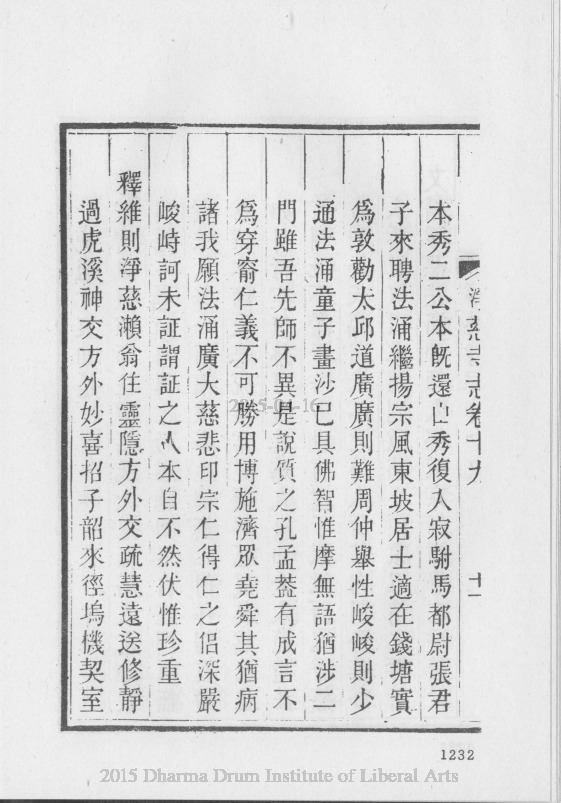 淨慈寺志卷十九
十一
本秀二公本旣還山秀復入寂駙馬都尉張君
子來聘法涌繼揚宗風東坡居士適在錢塘實
爲敦勸太邱道廣廣則難周仲舉性峻峻則少
通法涌童子畫沙已具佛智惟摩無語猶涉二
門雖吾先師不異是說質之孔孟葢有成言不
爲穿窬仁義不可勝用博施濟眾堯舜其猶病
諸我願法涌廣大慈悲印宗仁得仁之侣深嚴
峻峙訶未証謂証之人本自不然伏惟珍重
釋維則淨慈瀨翁住靈隱方外交疏慧遠送修靜
過虎溪神交方外妙喜招子韶來徑塢機契室
1232
2015-04-16
2015 Dharma Drum Institute of Liberal Arts